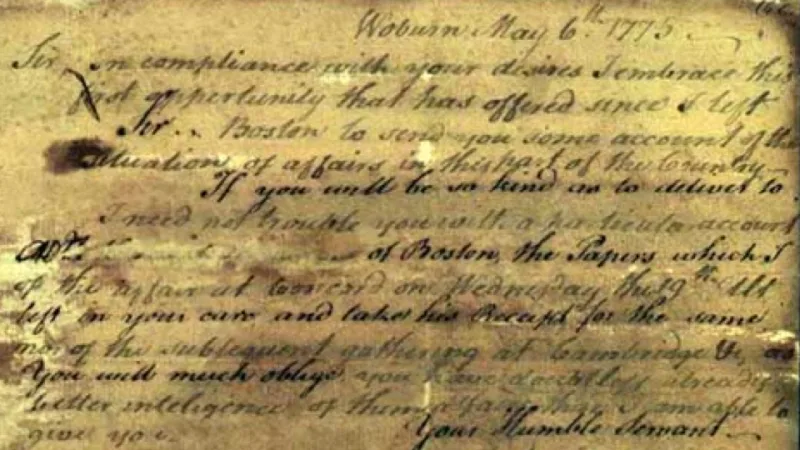 Woburn May 6th 1775
Sir In compliance with your desires I embrace this
first opportunity that has offered since I left
Sir Boston to send you some account of the
situation of affairs in this part of the Country
If you will be so kind as to deliver to
I need not trouble you with a particular account
of Boston, the Papers which I
of the affair at Concord on Wednesday the 19th Ult
left in your care and take his Receipt for the same
nor of the subsequent gathering at Cambridge &c, as
You will much oblige you have doubtless already
better inteligence of than I am able to
give you.
Your Humble Servant